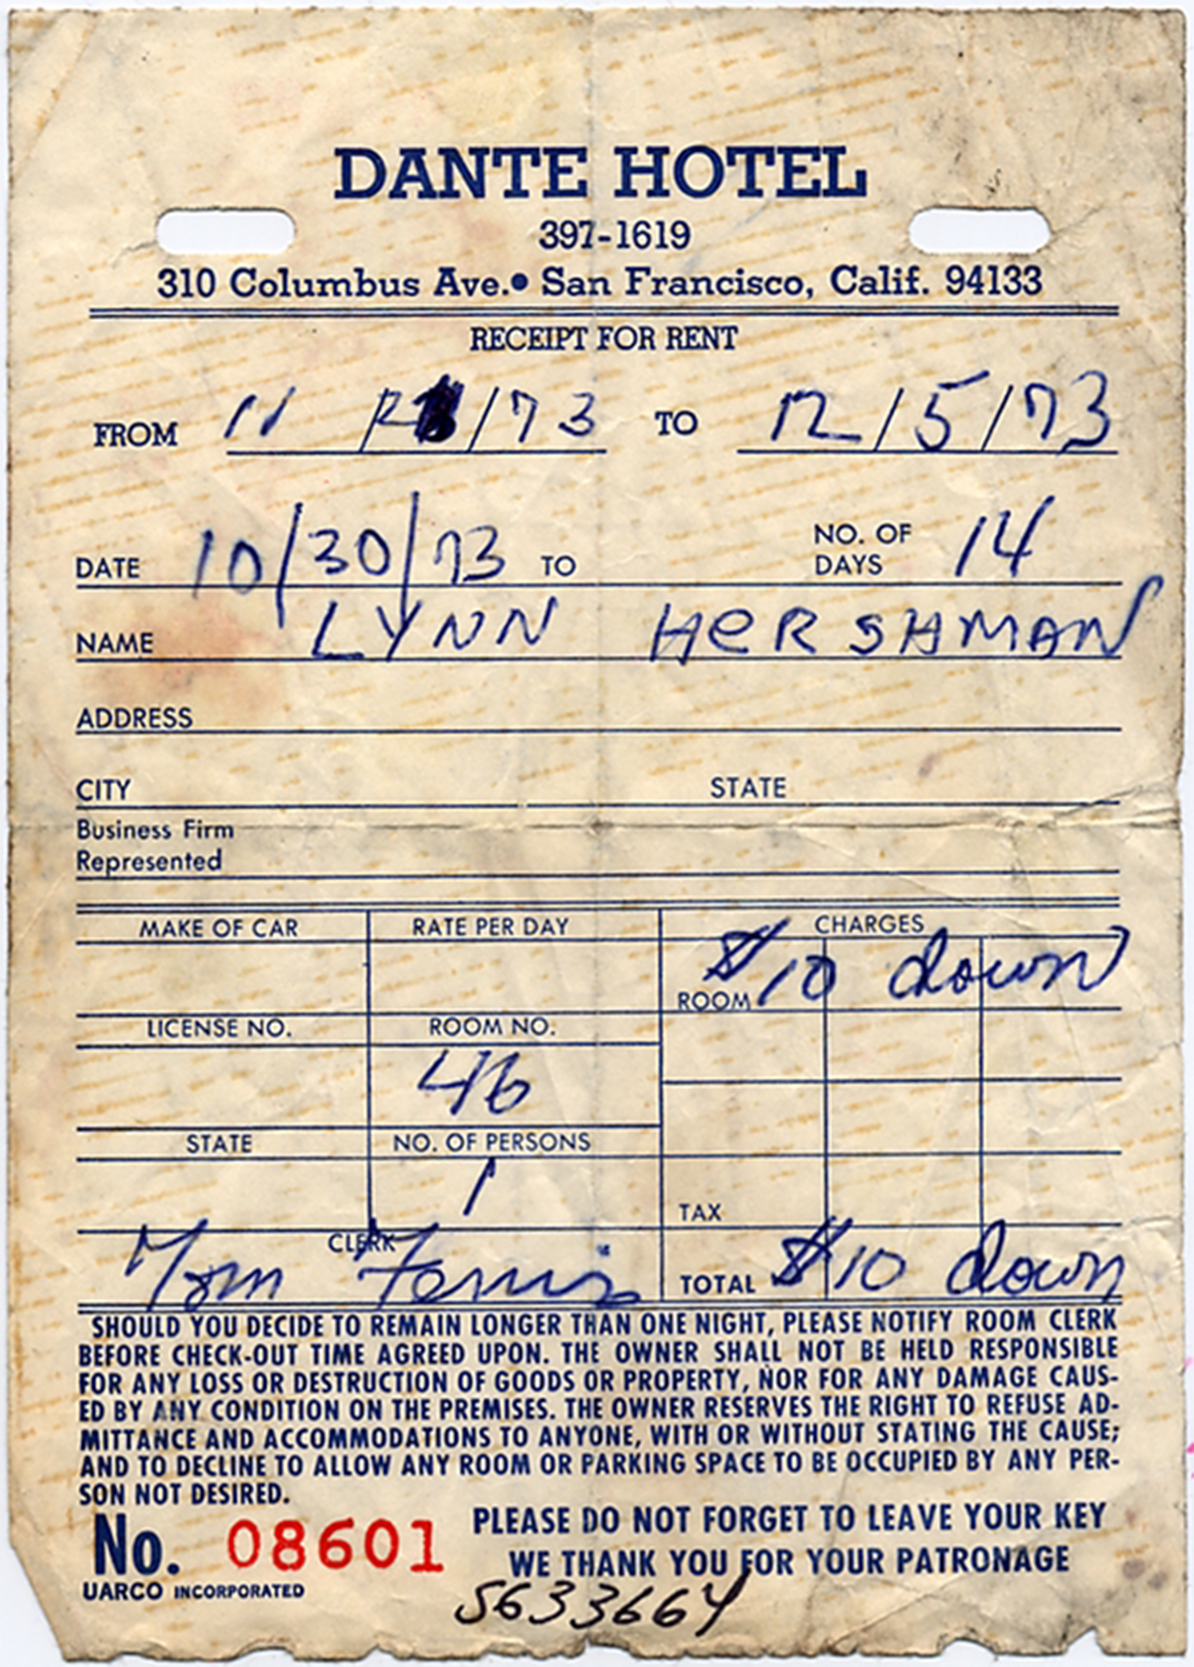 DANTE HOTEL
397-1619
310 Columbus Ave.• San Francisco, Calif. 94133
RECEIPT FOR RENT
FROM 11 / /73 TO 12/5/73
DATE 10/30/73 TO NO. OF DAYS 14
NAME LYNN HeRSHMAN
ADDRESS
CITY STATE
Business Firm
Represented
MAKE OF CAR RATE PER DAY CHARGES
ROOM $10 down
LICENSE NO. ROOM NO.
46
STATE NO. OF PERSONS
1
TAX
CLERK Tom Ferris TOTAL $10 down
SHOULD YOU DECIDE TO REMAIN LONGER THAN ONE NIGHT, PLEASE NOTIFY ROOM CLERK
BEFORE CHECK-OUT TIME AGREED UPON. THE OWNER SHALL NOT BE HELD RESPONSIBLE
FOR ANY LOSS OR DESTRUCTION OF GOODS OR PROPERTY, NOR FOR ANY DAMAGE CAUS-
ED BY ANY CONDITION ON THE PREMISES. THE OWNER RESERVES THE RIGHT TO REFUSE AD-
MITTANCE AND ACCOMMODATIONS TO ANYONE, WITH OR WITHOUT STATING THE CAUSE;
AND TO DECLINE TO ALLOW ANY ROOM OR PARKING SPACE TO BE OCCUPIED BY ANY PER-
SON NOT DESIRED.
No. 08601 PLEASE DO NOT FORGET TO LEAVE YOUR KEY
WE THANK YOU FOR YOUR PATRONAGE
UARCO INCORPORATED
5633664